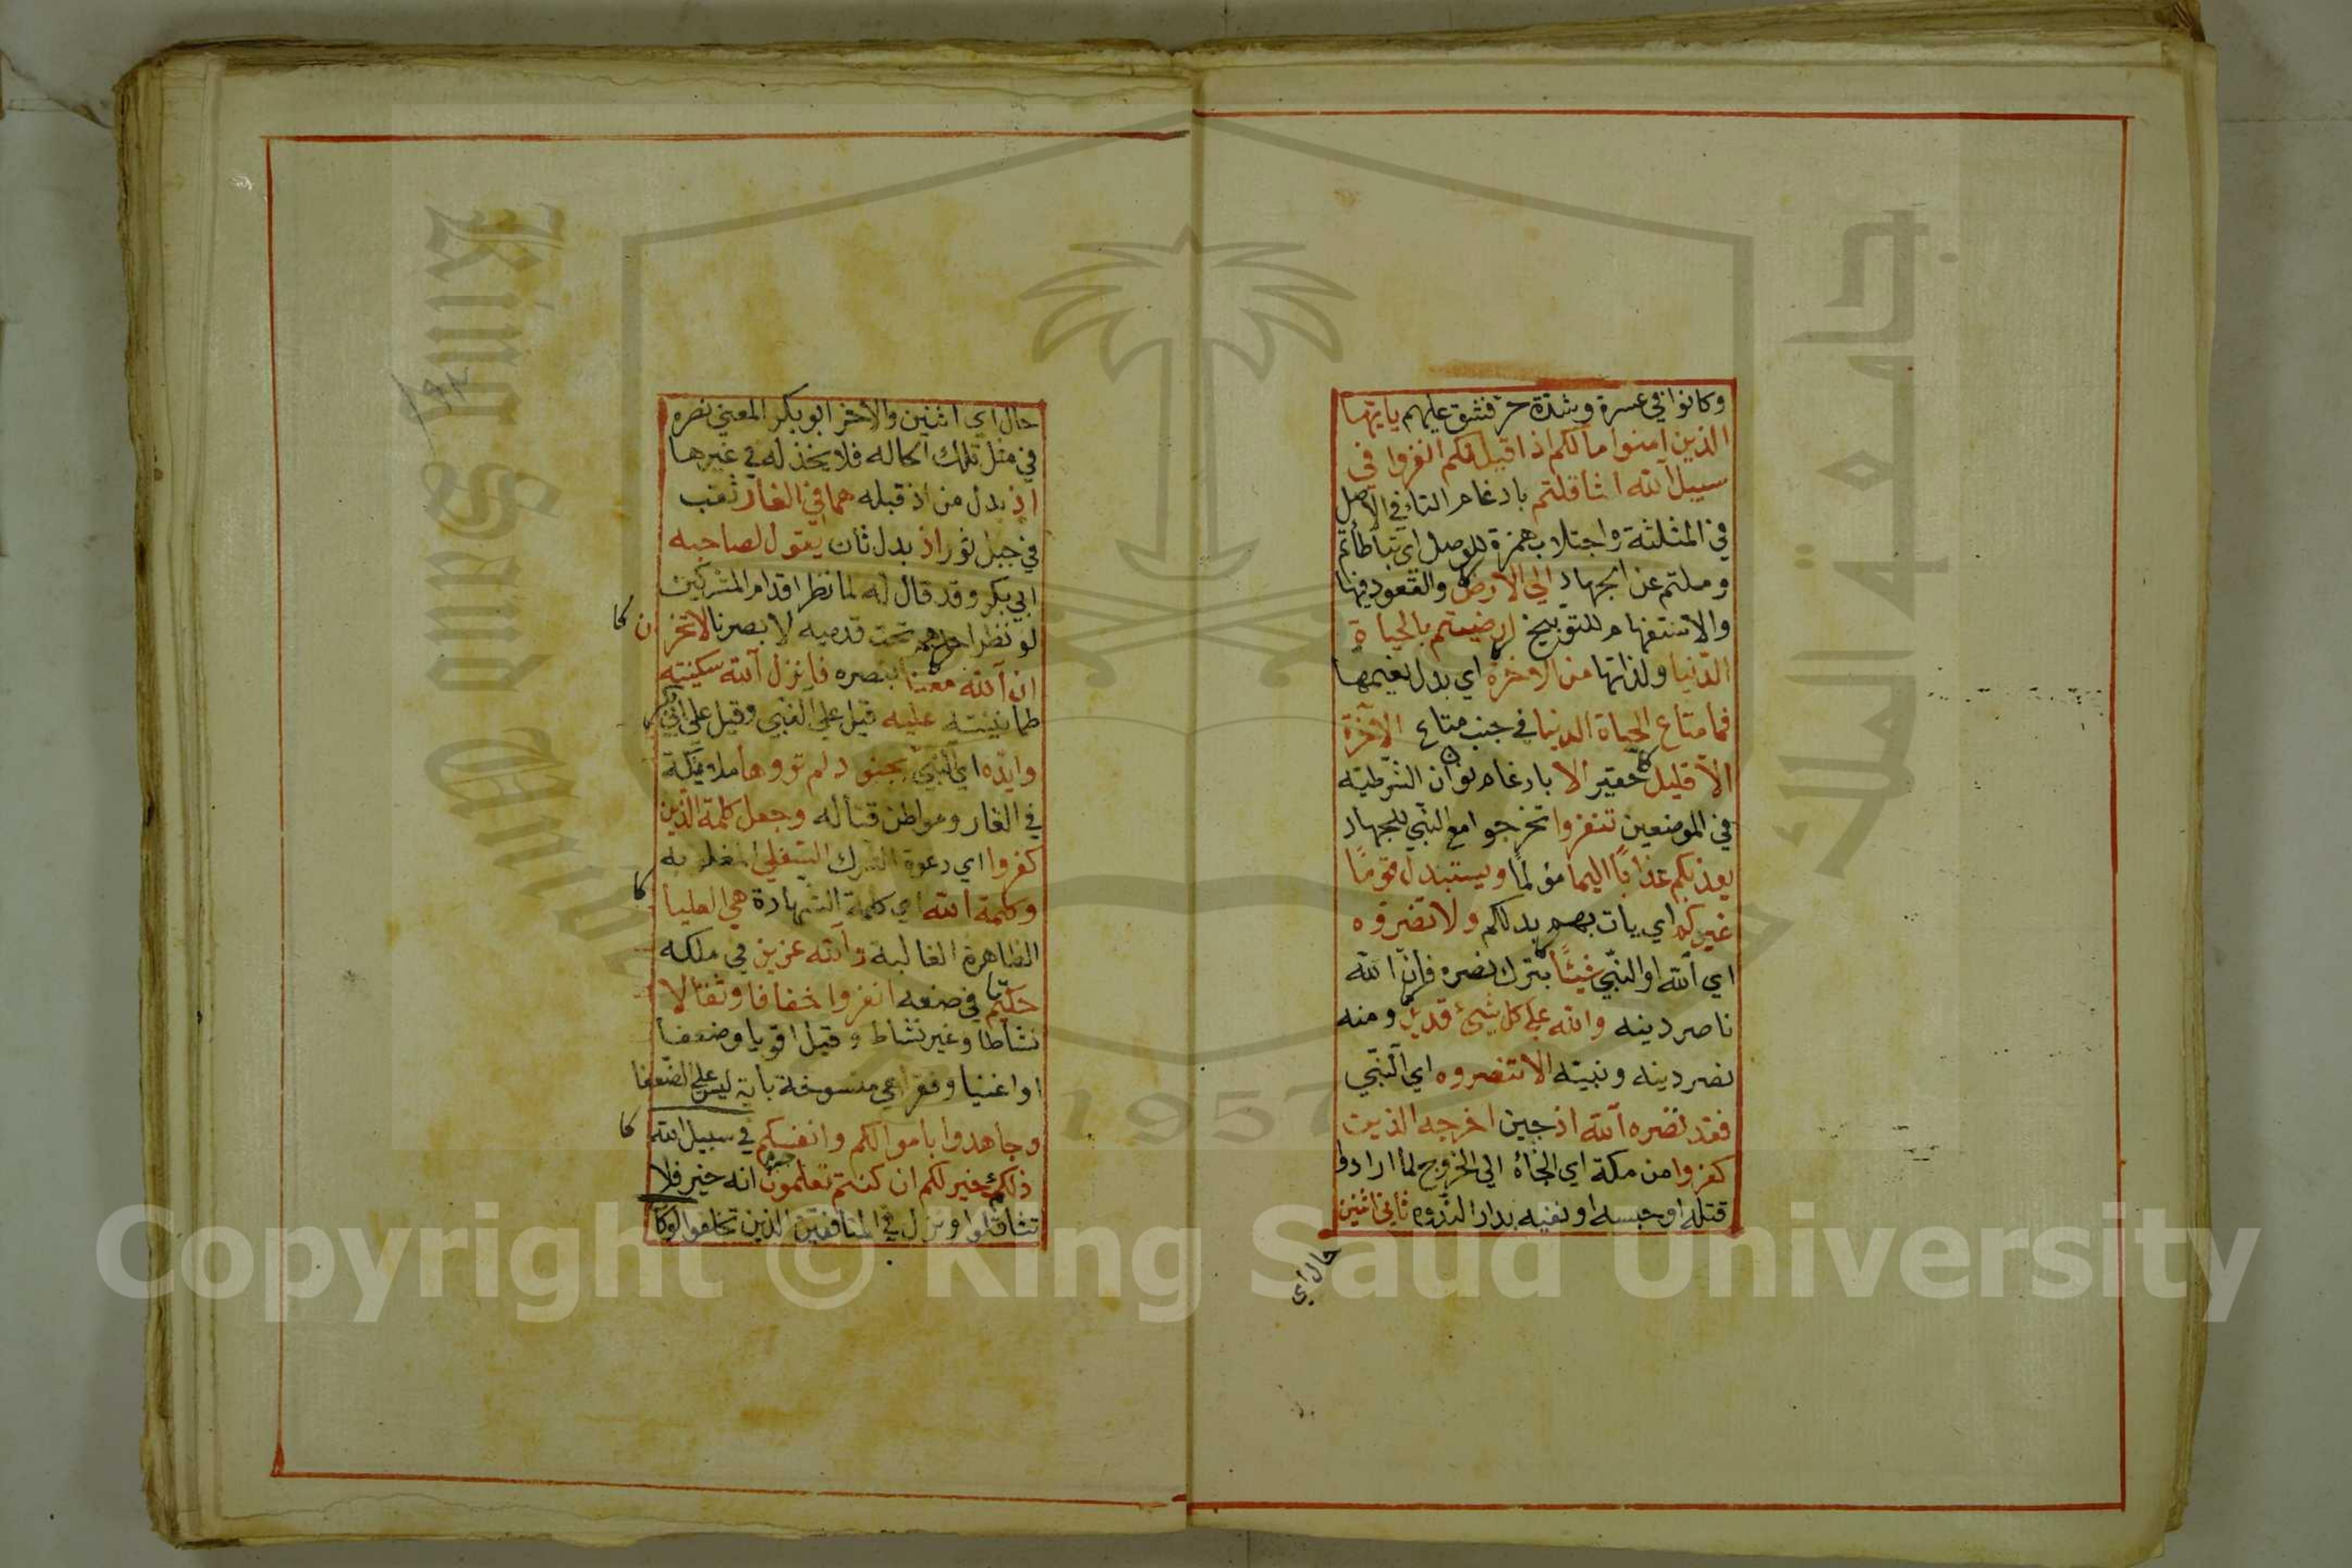 وكانوا في عسرة وشدة حر فشق عليهم يا يها
الذين امنوا مالكم اذا قيل لكم انفروا في
سبيل الله اثاقلتم بادغام التاء في الاصل
في المثلثة واجتلاب همزة للوصل اي تباطأتم
وملتم عن الجهاد الي الارض والقعود فيها
والاستفهام للتوبيخ ارضيتم بالحياة
الدنيا ولذاتها من الاخرة اي بدل نعيمها
فما متاع الحياة الدنيا في جنب متاع الاخرة
الا قليل حقير الا بادغام نون ان الشرطية
في الموضعين تنفروا تخرجوا مع النبي للجهاد
يعذبكم عذابا اليما مؤلما ويستبدل قوما
غيركم اي يات بهم بدلكم ولا تضروه
اي الله او النبي شيئا بترك نصره فان الله
ناصر دينه والله علي كل شيء قدير ومنه
نصر دينه ونبيه الا تنصروه اي النبي
فقد نصره الله اذ حين اخرجه الذين
كفروا من مكة اي الجأه الي الخروج لما ارادوا
قتله او حبسه او نفيه بدار الندوه ثاني اثنين
حال اي
حال اي اثنين والاخر ابو بكر المعني نصره
في مثل تلك الحاله فلا يخذله في غيرها
اذ بدل من اذ قبله هما في الغار نقب
في جبل ثور اذ بدل ثان يقول لصاحبه
ابي بكر وقد قال له لما نظر اقدام المشركين
لو نظر احدهم تحت قدميه لابصرنا لا تحزن
ان الله معنا بنصره فانزل الله سكينته
طمانينته عليه قيل علي النبي وقيل علي ابي بكر
وايده اي النبي بجنود لم تروها ملائكة
في الغار ومواطن قتاله وجعل كلمة الذين
كفروا اي دعوة الشرك السفلي المغلوبه
وكلمة الله اي كلمة الشهادة هي العليا
الظاهرة الغالبة والله عزيز في ملكه
حكيم في صنعه انفروا خفافا وثقالا
نشاطا وغير نشاط وقيل اقويا وضعفا
او اغنيا وفقرا هي منسوخة باية ليس علي الضعفا
وجاهدوا باموالكم وانفسكم في سبيل الله
ذلكم خير لكم ان كنتم تعلمون انه خير فلا
تثاقلوا ونزل في المنافقين الذين تخلفوا لو كا
King Saud University
جامعة الملك
1957
Copyright © King Saud University